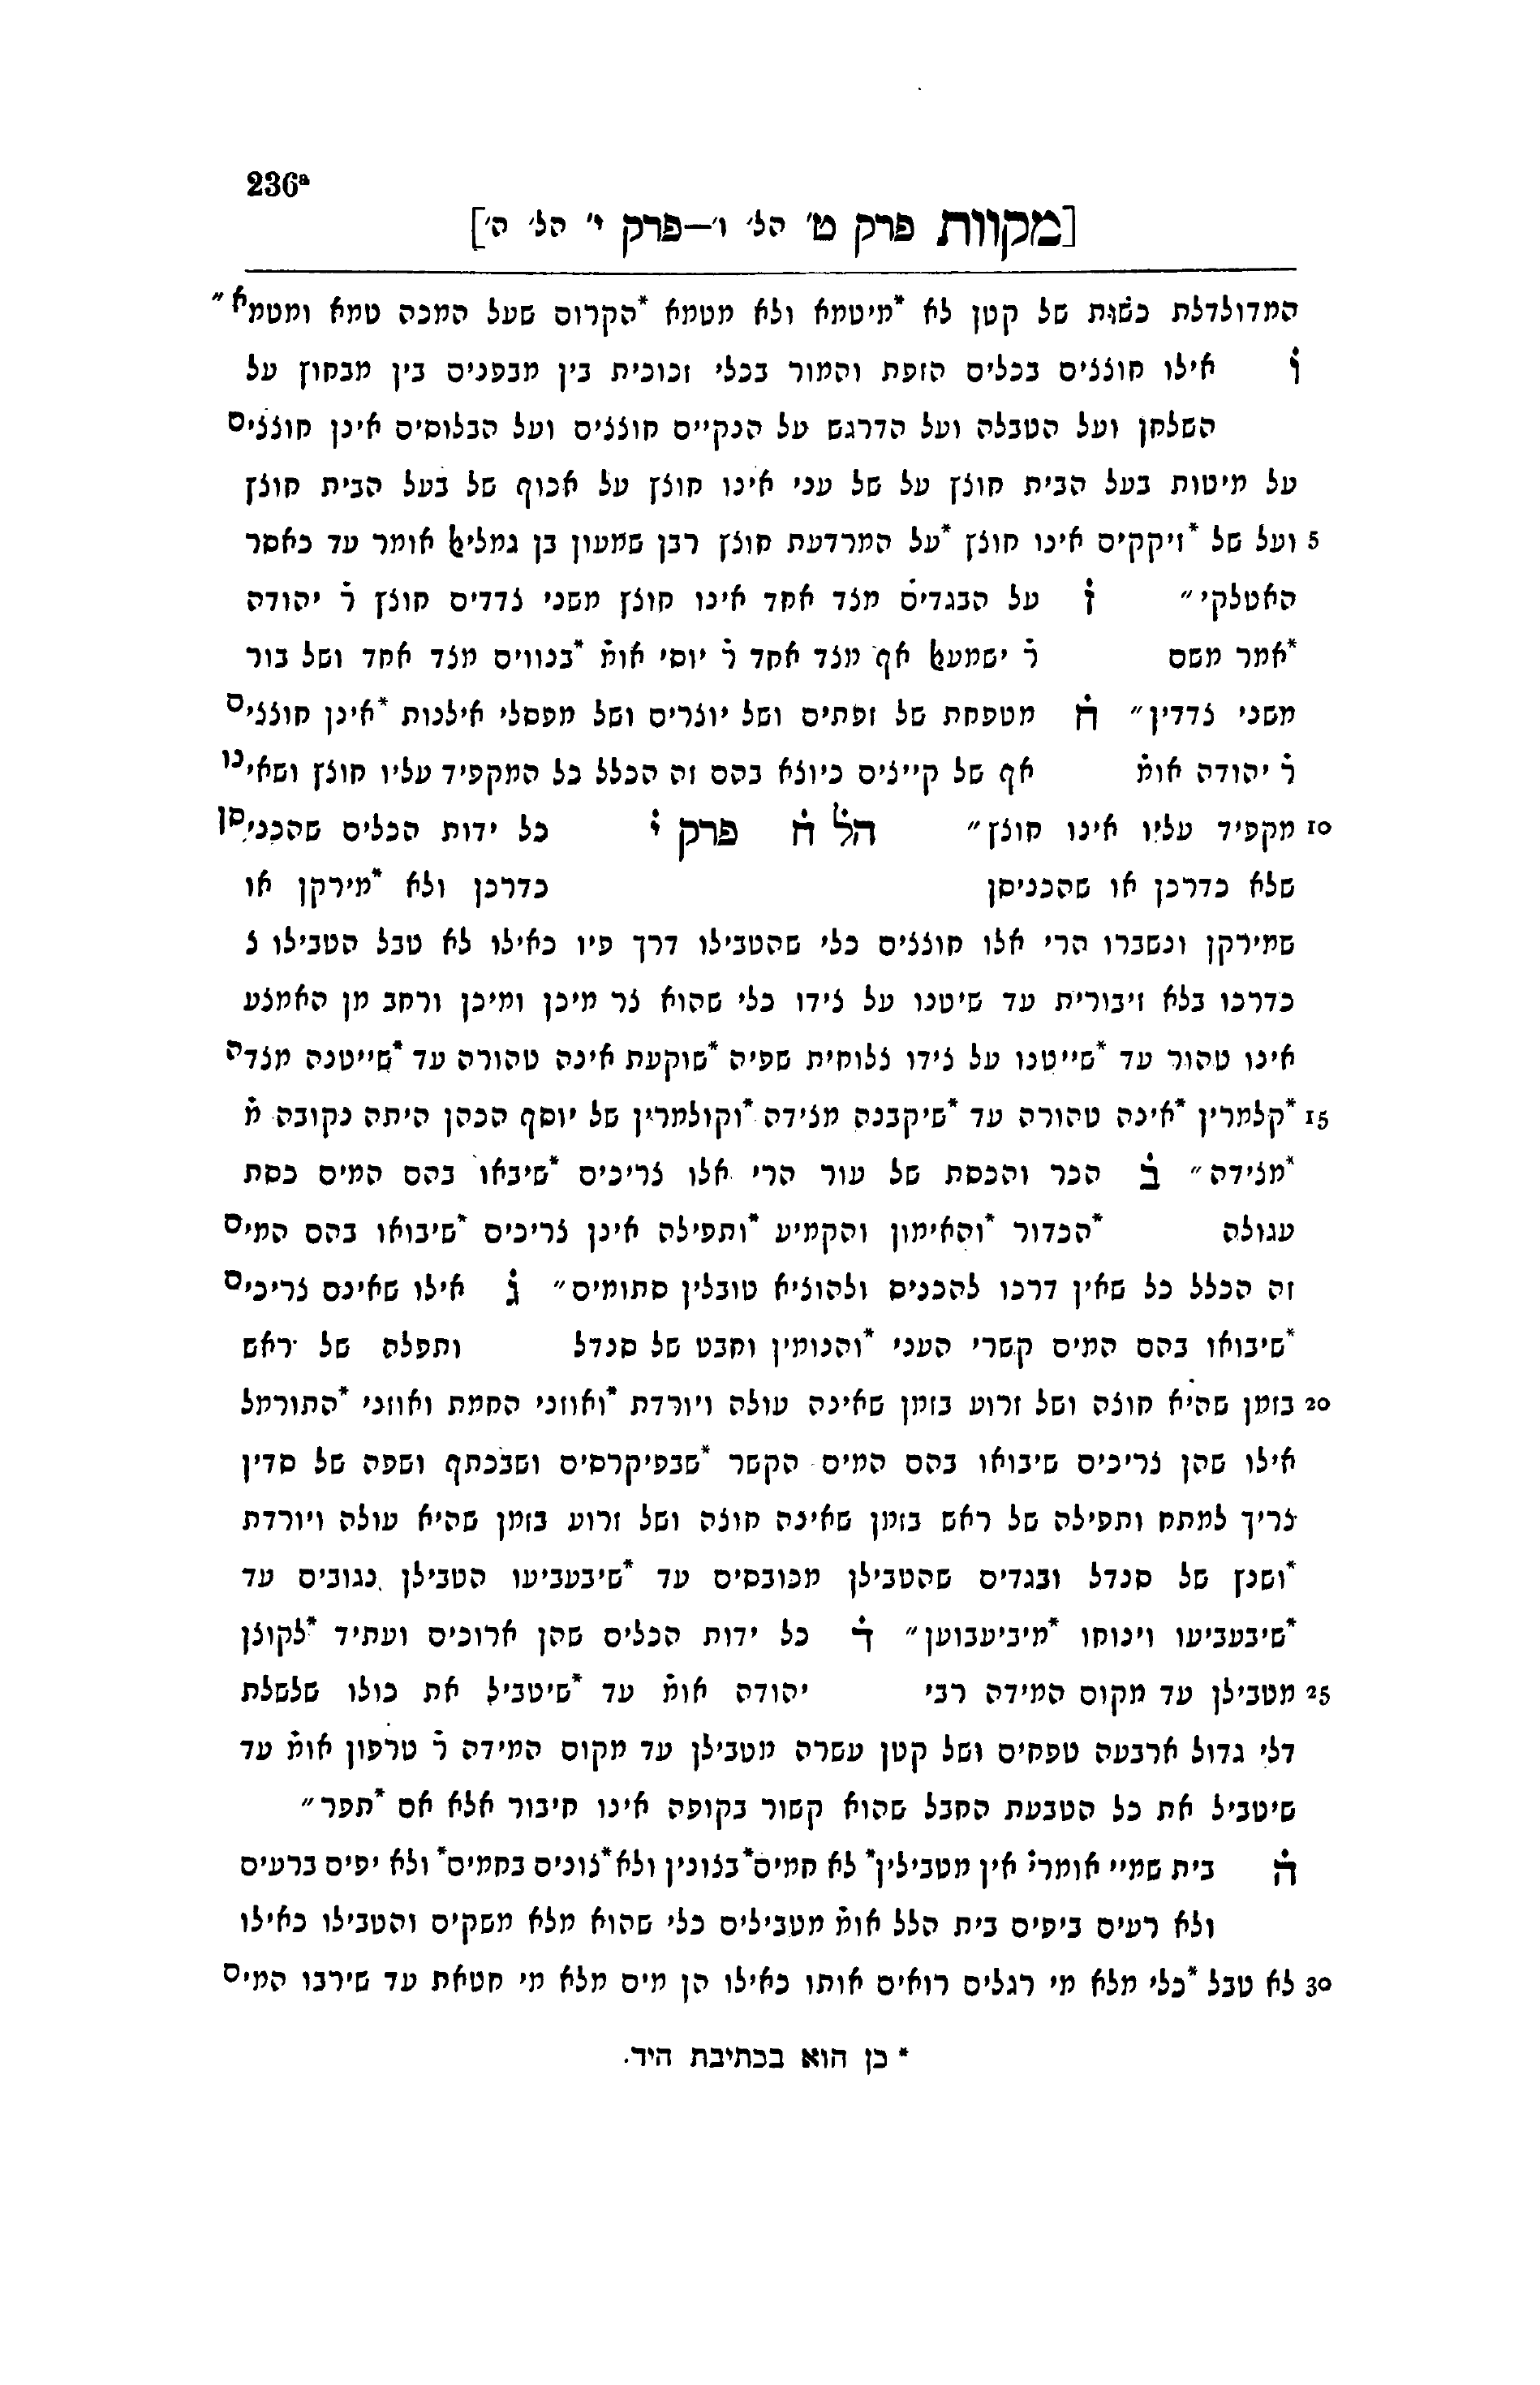 236ª
[מקוות פרק ט׳ הל׳ ו׳—פרק י׳ הל׳ ה׳]
המדולדלת כשות של קטן לא *מיטמא ולא מטמא *הקרום שעל המכה טמא ומטמא״
ו̇ אילו חוצצים בכלים הזפת והמור בכלי זכוכית בין מבפנים בין מבחוץ על
השלחן ועל הטבלה ועל הדרגש על הנקיים חוצצים ועל הבלוסים אינן חוצצים
על מיטות בעל הבית חוצץ על של עני אינו חוצץ על אכוף של בעל הבית חוצץ
5 ועל של *זיקקים אינו חוצץ *על המרדעת חוצץ רבן שמעון בן גמליאל אומר עד כאסר
האטלקי״ ז̇ על הבגדים מצד אחד אינו חוצץ משני צדדים חוצץ ר̇ יהודה
*אמר משם ר̇ ישמעאל אף מצד אחד ר̇ יוסי אומ̇ *בנווים מצד אחד ושל בור
משני צדדין״ ח̇ מטפחת של זפתים ושל יוצרים ושל מפסלי אילנות *אינן חוצצים
ר̇ יהודה אומ̇ אף של קייצים כיוצא בהם זה הכלל כל המקפיד עליו חוצץ ושאינו
10 מקפיד עליו אינו חוצץ״ הל̇ ח̇ פרק י̇ כל ידות הכלים שהכניסן
שלא כדרכן או שהכניסן כדרכן ולא *מירקן או
שמירקן ונשברו הרי אלו חוצצים כלי שהטבילו דרך פיו כאילו לא טבל הטבילו צ
כדרכו בלא זיבורית עד שיטנו על צידו כלי שהוא צר מיכן ומיכן ורחב מן האמצע
אינו טהור עד *שייטנו על צידו צלוחית שפיה *שוקעת אינה טהורה עד *שייטנה מצדה
15 *קלמרין *אינה טהורה עד *שיקבנה מצידה *וקולמרין של יוסף הכהן היתה נקובה מ̇
*מצידה״ ב̇ הכר והכסת של עור הרי אלו צריכים *שיבאו בהם המים כסת
עגולה *הכדור *והאימון והקמיע *ותפילה אינן צריכים *שיבואו בהם המים
זה הכלל כל שאין דרכו להכניס ולהוציא טובלין סתומים״ ג̇ אילו שאינם צריכים
*שיבואו בהם המים קשרי העני *והנומין וחבט של סנדל ותפלה של ראש
20 בזמן שהיא חוצה ושל זרוע בזמן שאינה עולה ויורדת *ואוזני החמת ואוזני *התורמל
אילו שהן צריכים שיבואו בהם המים הקשר *שבפיקרסים ושבכתף ושפה של סדין
צריך למתח ותפילה של ראש בזמן שאינה חוצה ושל זרוע בזמן שהיא עולה ויורדת
*ושנץ של סנדל ובגדים שהטבילן מכובסים עד *שיבעביעו הטבילן נגובים עד
*שיבעביעו וינוחו *מיביעבוען״ ד̇ כל ידות הכלים שהן ארוכים ועתיד *לקוצן
25 מטבילן עד מקום המידה רבי יהודה אומ̇ עד *שיטביל את כולו שלשלת
דלי גדול ארבעה טפחים ושל קטן עשרה מטבילן עד מקום המידה ר̇ טרפון אומ̇ עד
שיטביל את כל הטבעת החבל שהוא קשור בקופה אינו חיבור אלא אם *תפר״
ה̇ בית שמיי אומרי̇ אין מטבילין* לא חמים*בצונין ולא*צונים בחמים* ולא יפים ברעים
ולא רעים ביפים בית הלל אומ̇ מטבילים כלי שהוא מלא משקים והטבילו כאילו
30 לא טבל *כלי מלא מי רגלים רואים אותו כאילו הן מים מלא מי חטאת עד שירבו המים
* כן הוא בכתיבת היד.